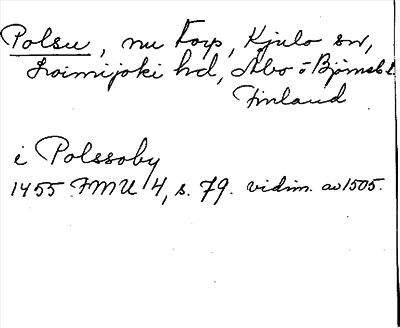 Polsu, nu Torp, Kjulo sn,
Loimijoki hd, Åbo o Björneb l.
Finland
i Polssoby
1455 FMU 4, s. 79. vidim. av 1505.